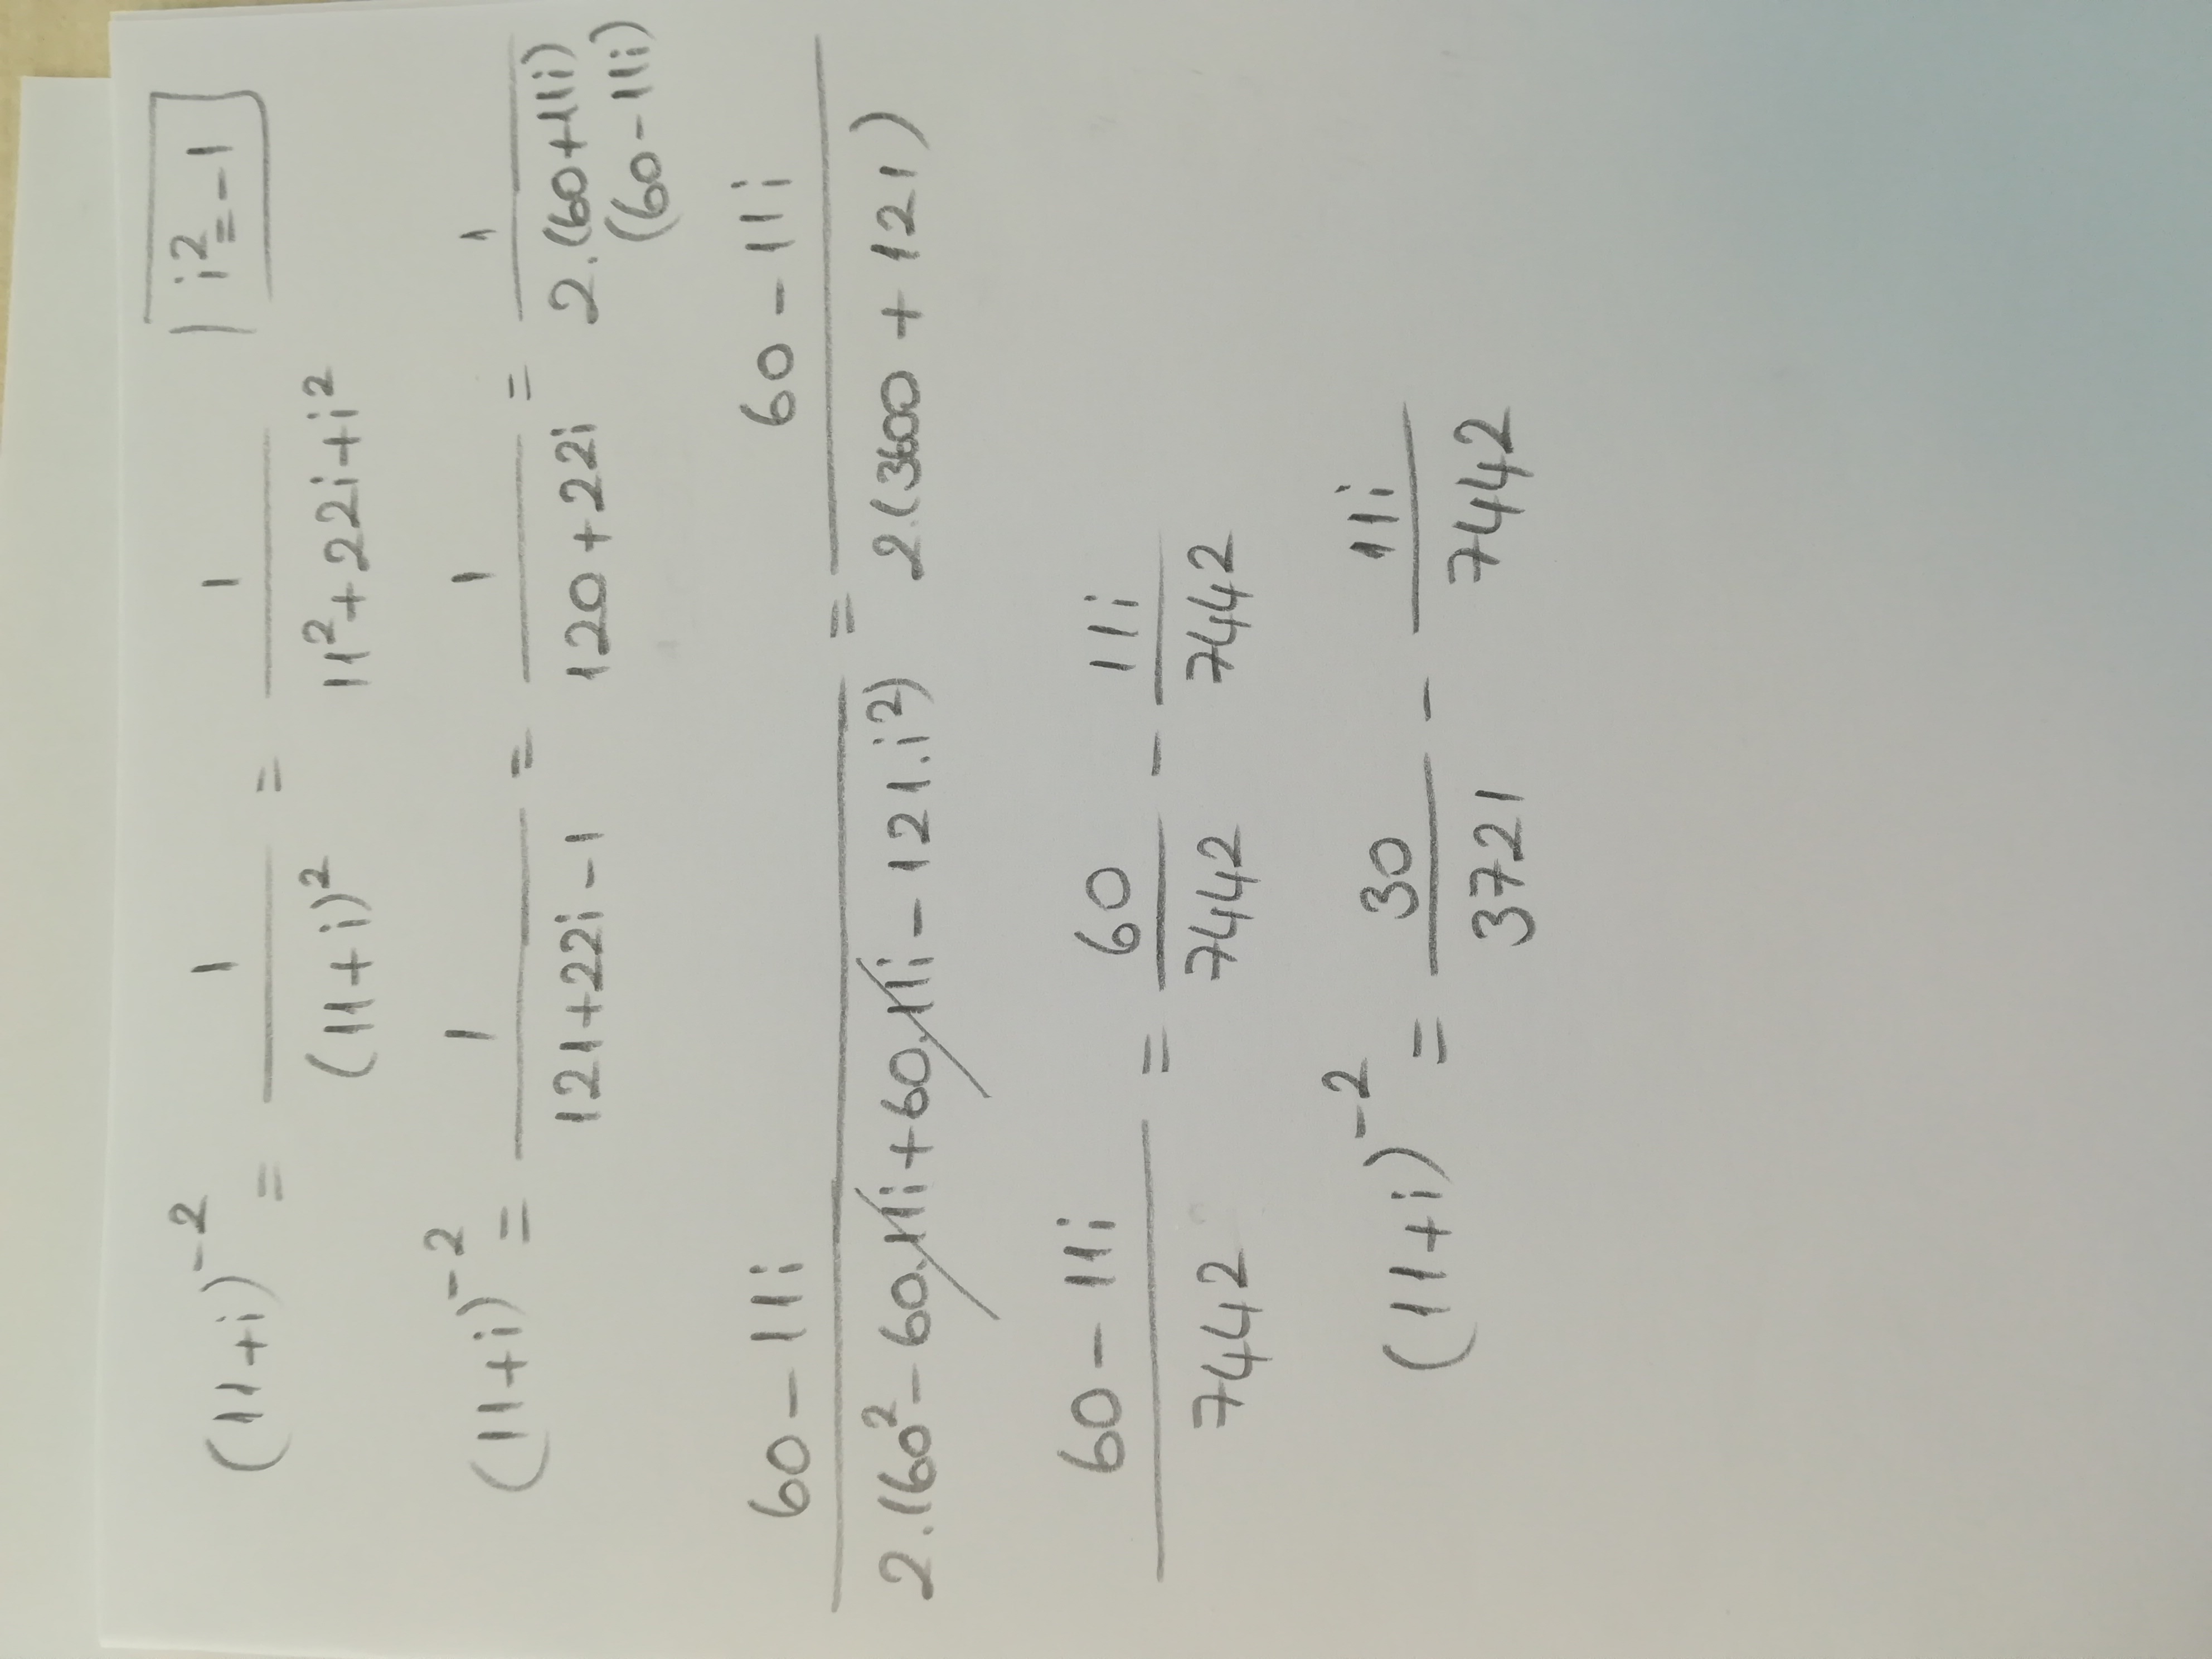 i²=-1
(11+i)⁻² = 1/(11+i)² = 1/(11²+22i+i²)
(11+i)⁻² = 1/(121+22i-1) = 1/(120+22i) = 1/(2.(60+11i)) (60-11i)
(60-11i)/(2.(60²-60.11i+60.11i-121.i²)) = (60-11i)/(2.(3600+121))
(60-11i)/7442 = 60/7442 - 11i/7442
(11+i)⁻² = 30/3721 - 11i/7442